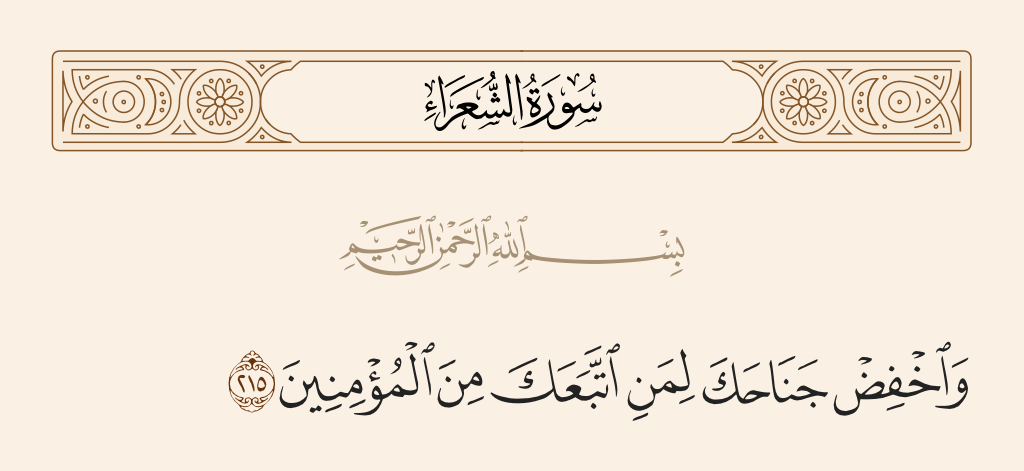 سُورَةُ الشُّعَرَاءِ
بِسْمِ ٱللَّهِ ٱلرَّحْمَٰنِ ٱلرَّحِيمِ
وَٱخْفِضْ جَنَاحَكَ لِمَنِ ٱتَّبَعَكَ مِنَ ٱلْمُؤْمِنِينَ ٢١٥